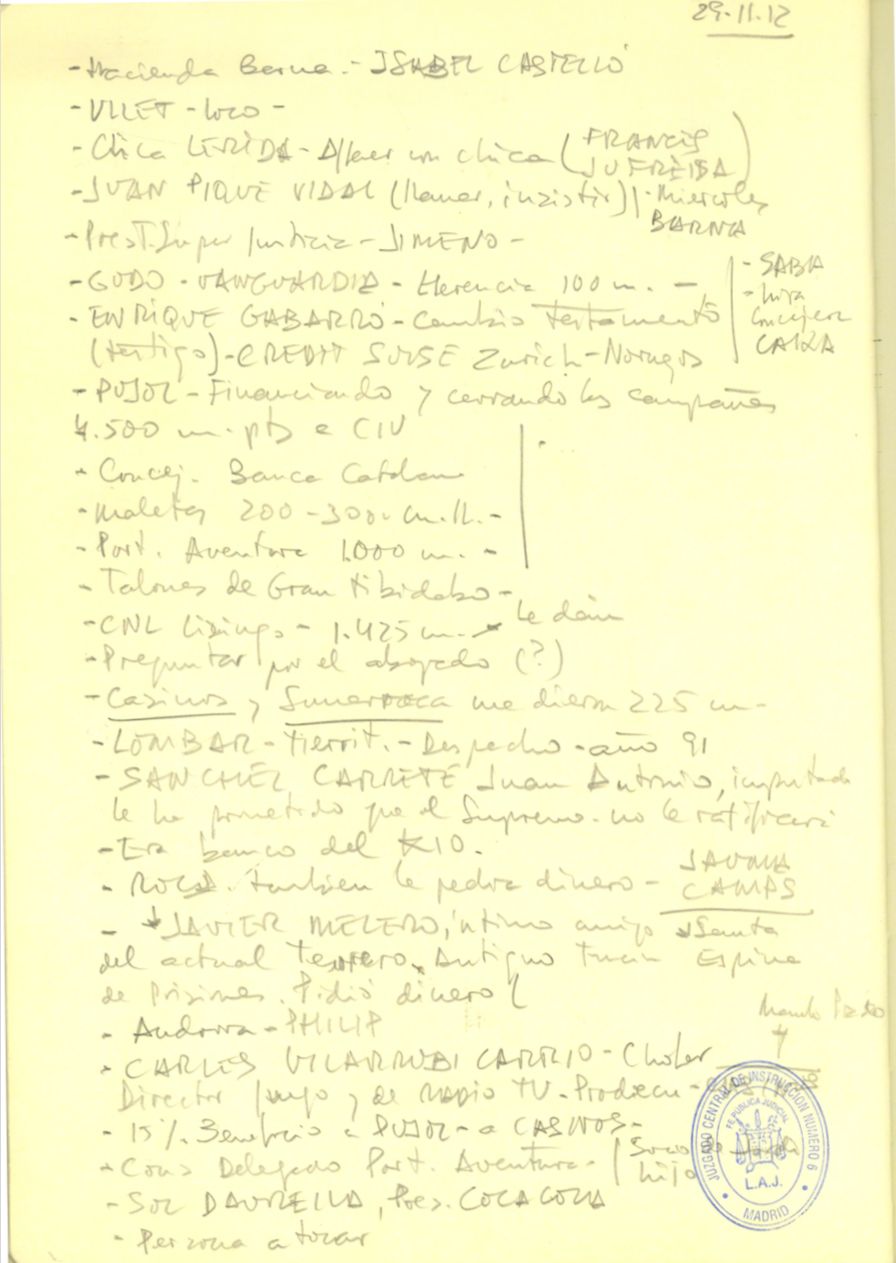 29-11-12
- Hacienda Barna.- ISABEL CASTELLÓ
- VLLET - loco -
- Chica LÉRIDA - Affaer con chica (FRANCIS JUFRESA)
- JUAN PIQUE VIDAL (llamar, insistir) | - Miercoles BARNA
- Prest. Super Justicia - JIMENO -
- GODO - VANGUARDIA - Herencia 100 m. -
- SABA
- ENRIQUE GABARRÓ - Cambio Testamento
- hija Concejera CAIXA
(testigo) - CREDIT SUISE Zurich - Noruegos
- PUJOL - Financiando y cerrando las campañas
4.500 m. pts a CIU
- Concej. Banca Catalana
- Maletas 200 - 300. m.
- Port. Aventura 1.000 m. -
- Talones de Gran Tibidabo -
- CNL - 1.425 m. Le dan
- Preguntar por el abogado (?)
- Casinos y Sumarroca me dieron 225 m -
- LOMBAR - Territ. - Despacho - año 91
- SANCHEZ CARRETE Juan Antonio, imputado
le ha prometido que el Supremo no le ratificará
- Era banco del KIO.
- ROCA. Tambien le pedia dinero - JAUME CAMPS
- JAVIER MELERO, íntimo amigo
del actual Tesorero. Antiguo
Santa Espina
de Prisiones. Pidió dinero
- Andorra - PHILIP
Prado
- CARLES VILARRUBI CARRIO - Chofer
Director Juego y de Radio TV - Producu -
- 15% Beneficio a PUJOL - a CASINOS -
- Cons Delegado Port. Aventura - | Socio de
hijo
- SOL DAURELLA, Pres. COCA COLA
- Persona a tocar
JUZGADO CENTRAL DE INSTRUCCION NUMERO 6
FE PUBLICA JUDICIAL
L.A.J.
MADRID